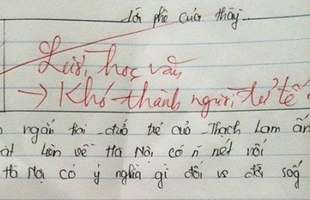 Lời phê của thầy
Lười học văn
→ Khó thành người tử tế
ngắn Hai đứa trẻ của Thạch Lam
Liên về Hà Nội có n nét
Hà Nội có ý nghĩa gì đối vs đời sống